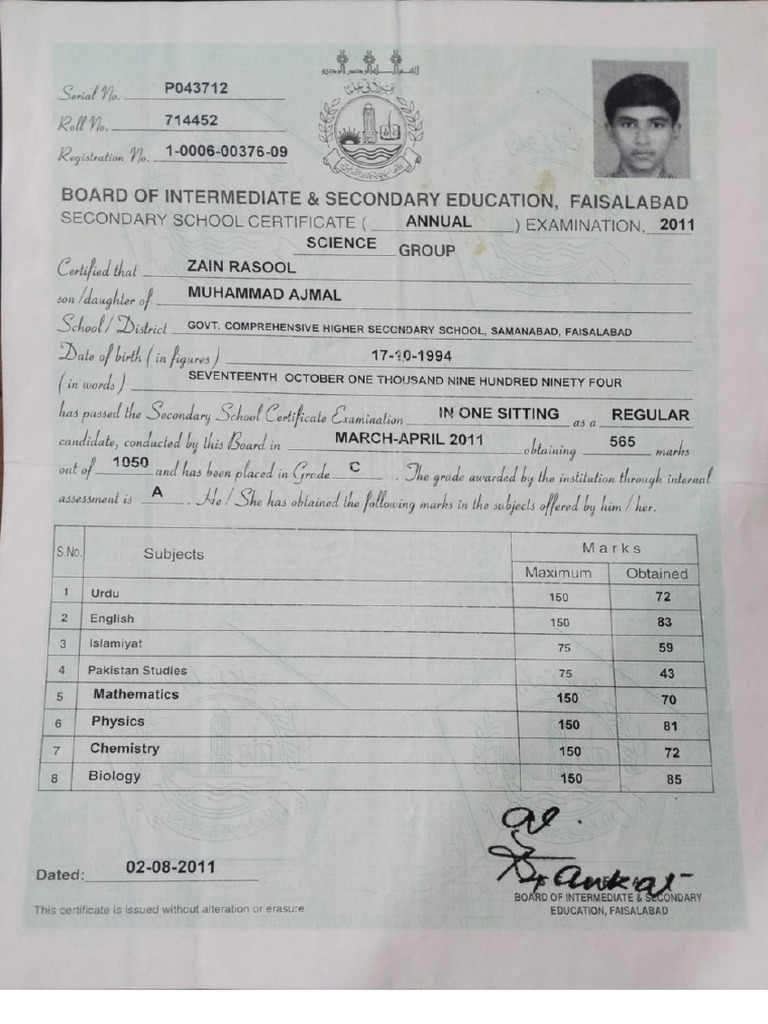 Serial No. P043712
Roll No. 714452
Registration No. 1-0006-00376-09
BOARD OF INTERMEDIATE & SECONDARY EDUCATION, FAISALABAD
SECONDARY SCHOOL CERTIFICATE ( ANNUAL ) EXAMINATION, 2011
SCIENCE GROUP
Certified that ZAIN RASOOL
son/daughter of MUHAMMAD AJMAL
School / District GOVT. COMPREHENSIVE HIGHER SECONDARY SCHOOL, SAMANABAD, FAISALABAD
Date of birth ( in figures ) 17-10-1994
( in words ) SEVENTEENTH OCTOBER ONE THOUSAND NINE HUNDRED NINETY FOUR
has passed the Secondary School Certificate Examination IN ONE SITTING as a REGULAR
candidate, conducted by this Board in MARCH-APRIL 2011 obtaining 565 marks
out of 1050 and has been placed in Grade C . The grade awarded by the institution through internal
assessment is A . He / She has obtained the following marks in the subjects offered by him / her.
S.No. Subjects Marks
Maximum Obtained
1 Urdu 150 72
2 English 150 83
3 Islamiyat 75 59
4 Pakistan Studies 75 43
5 Mathematics 150 70
6 Physics 150 81
7 Chemistry 150 72
8 Biology 150 85
Dated: 02-08-2011
BOARD OF INTERMEDIATE & SECONDARY
EDUCATION, FAISALABAD
This certificate is issued without alteration or erasure.